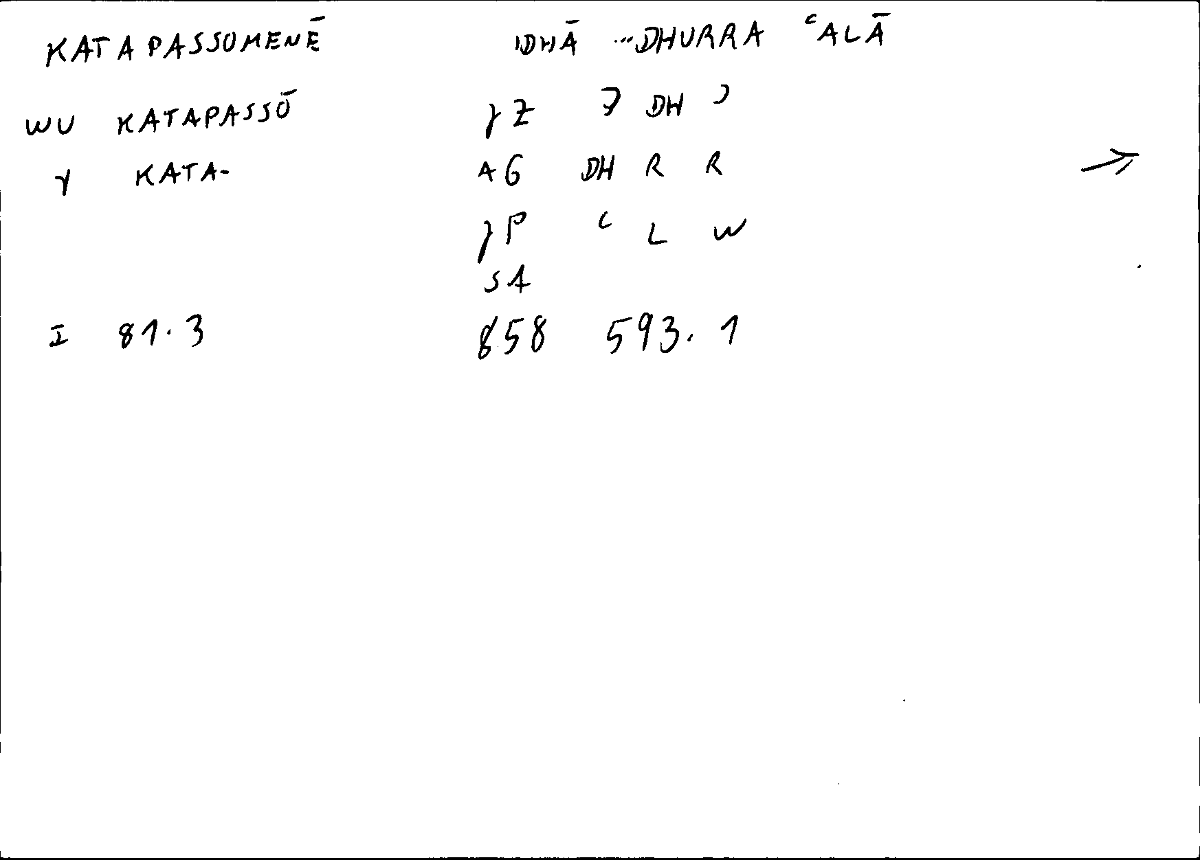 KATAPASSOMENĒ IDHĀ ...DHURRA ʿALĀ
WU KATAPASSŌ γ Z ʾ DH ʾ
γ KATA- AG DH R R →
γ P ʿ L W
SA
I 81.3 858 593.1